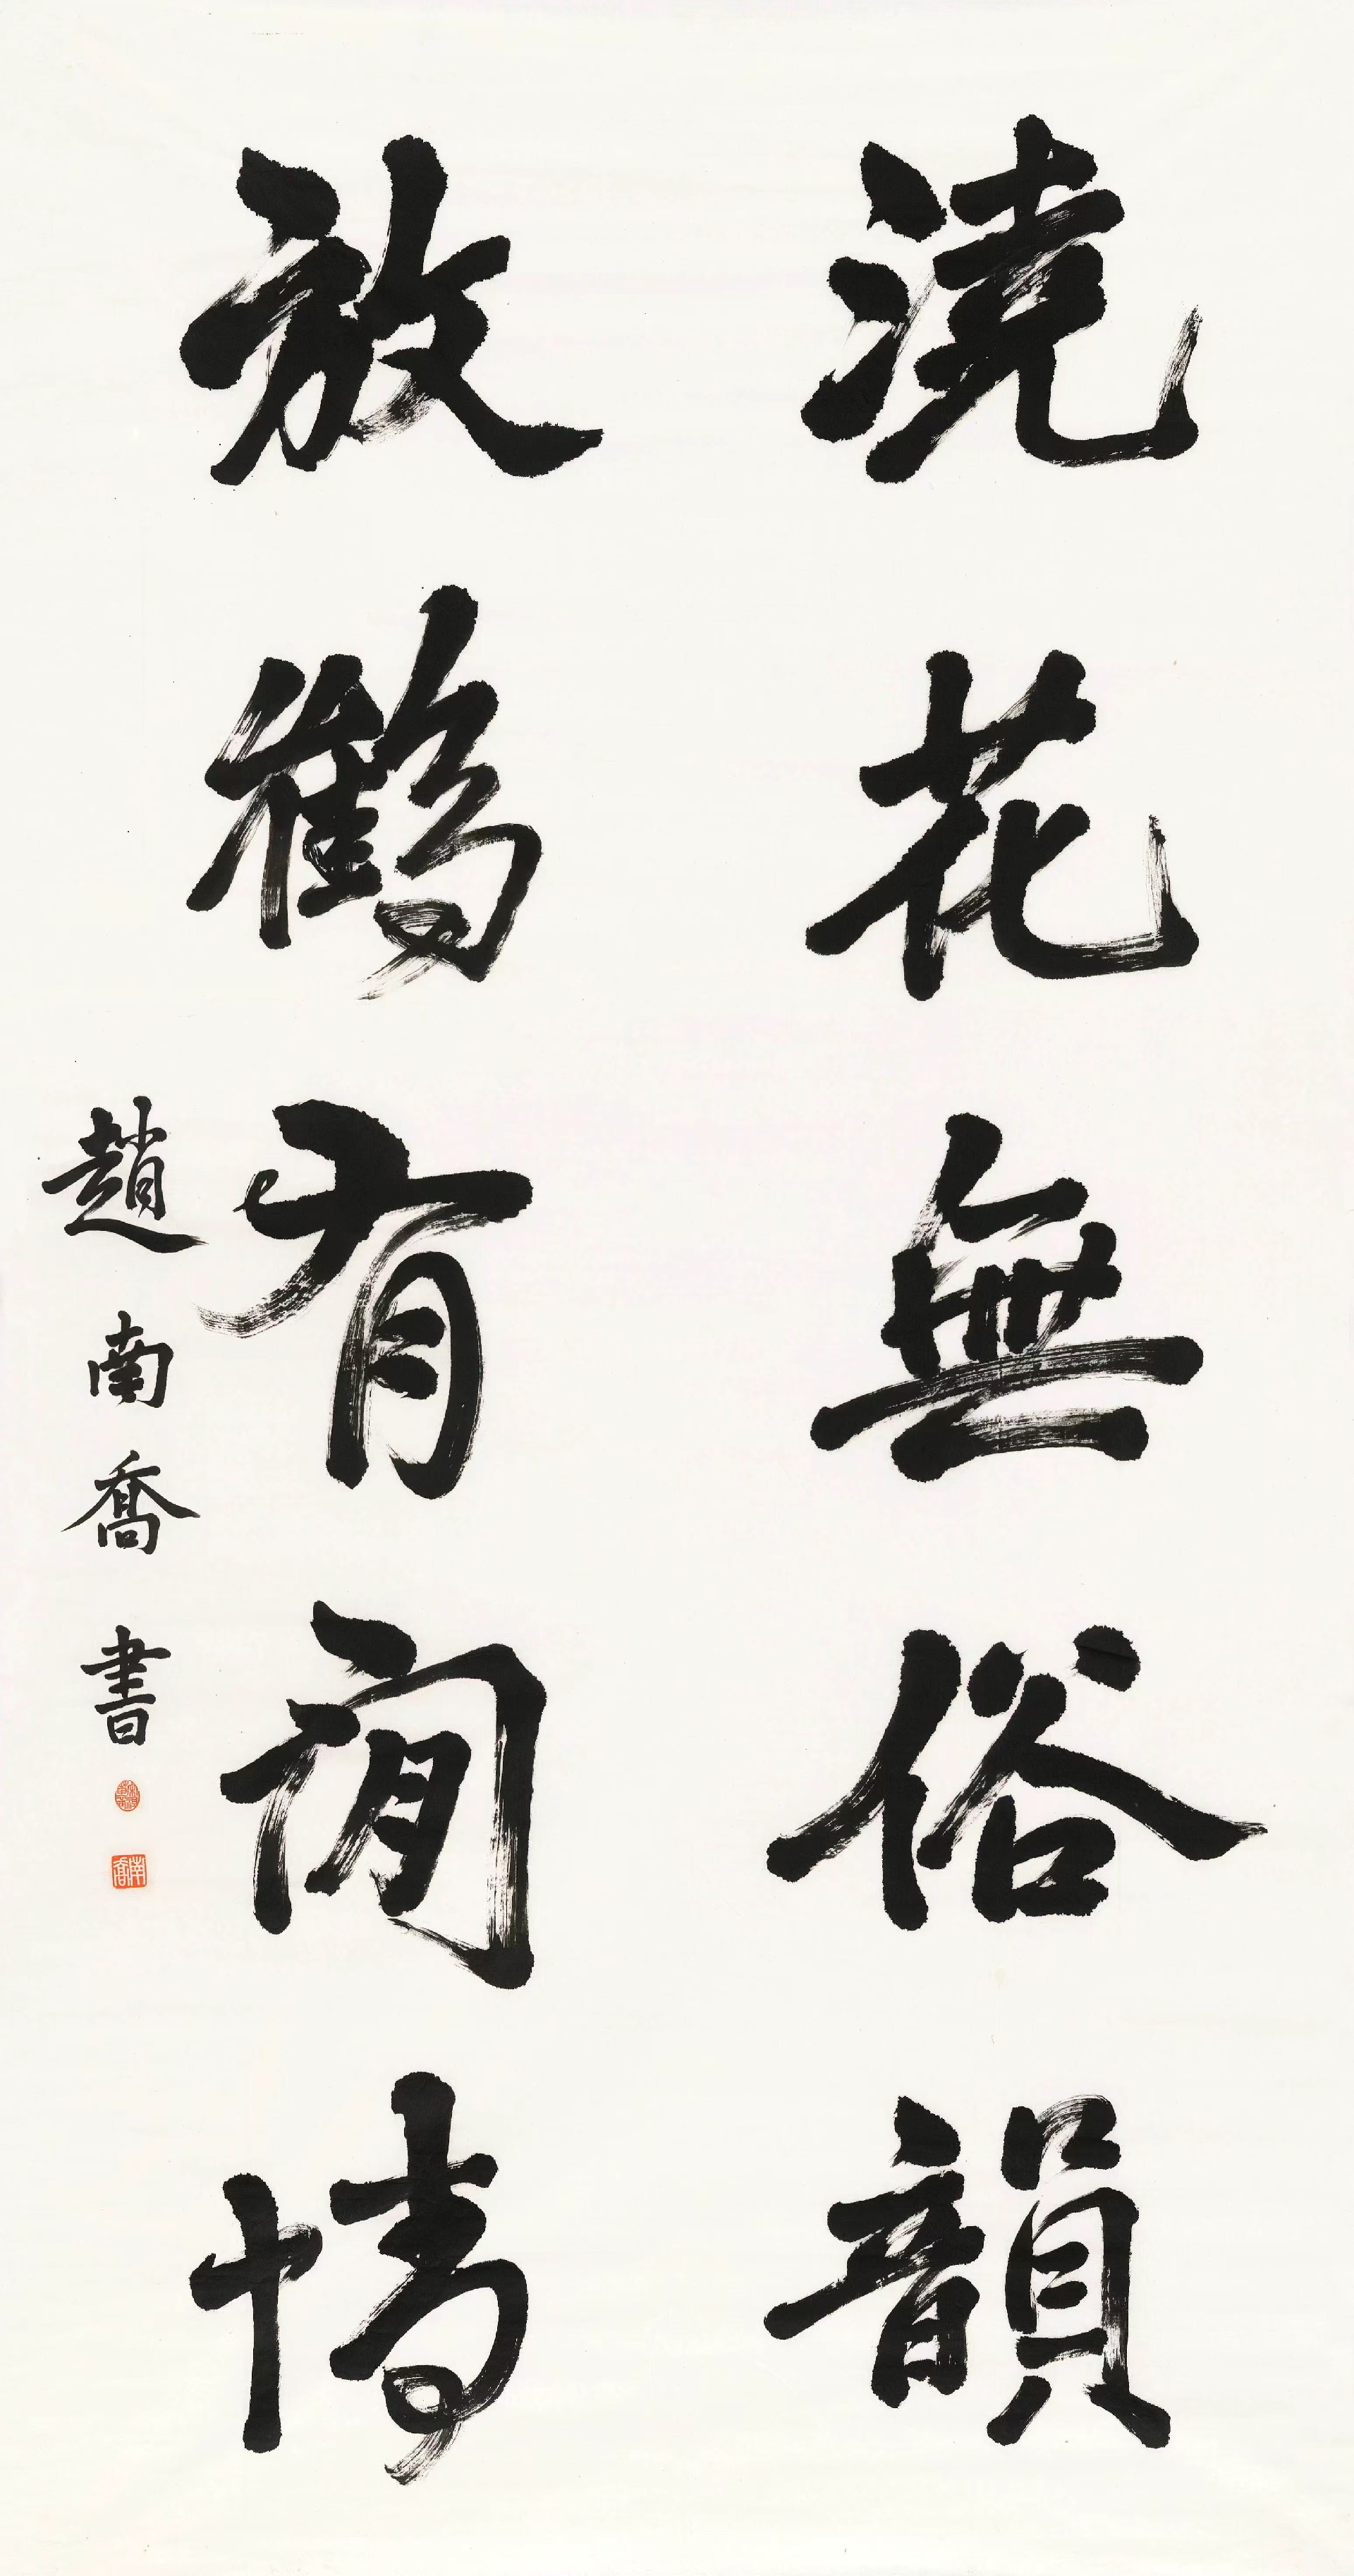 澆花無俗韻
放鶴有閒情
趙南喬書
南喬